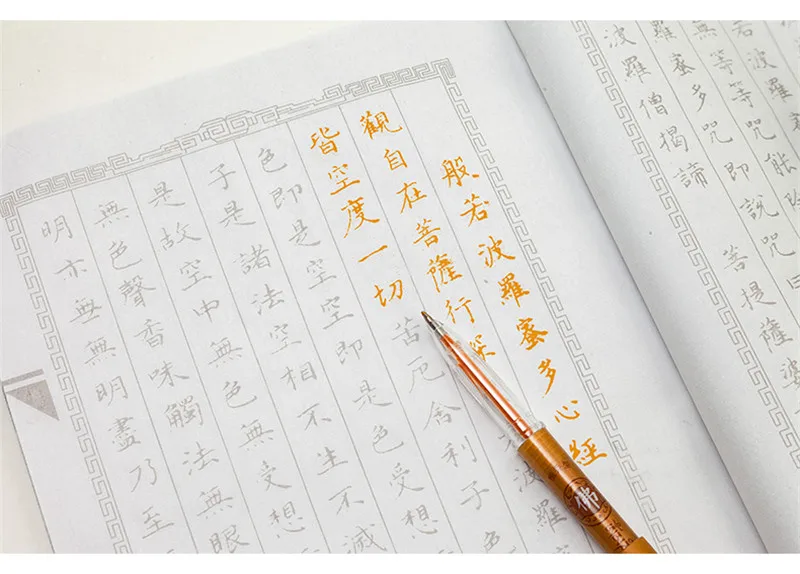 若波羅蜜
無等等咒能除
羅蜜多咒即說咒曰
波羅僧揭諦 菩提薩婆
般若波羅蜜多心經
觀自在菩薩行深
波羅
皆空度一切苦厄舍利子色
色即是空空即是色受想
子是諸法空相不生不滅
是故空中無色無受想
無色聲香味觸法無眼
明亦無無明盡乃至
佛